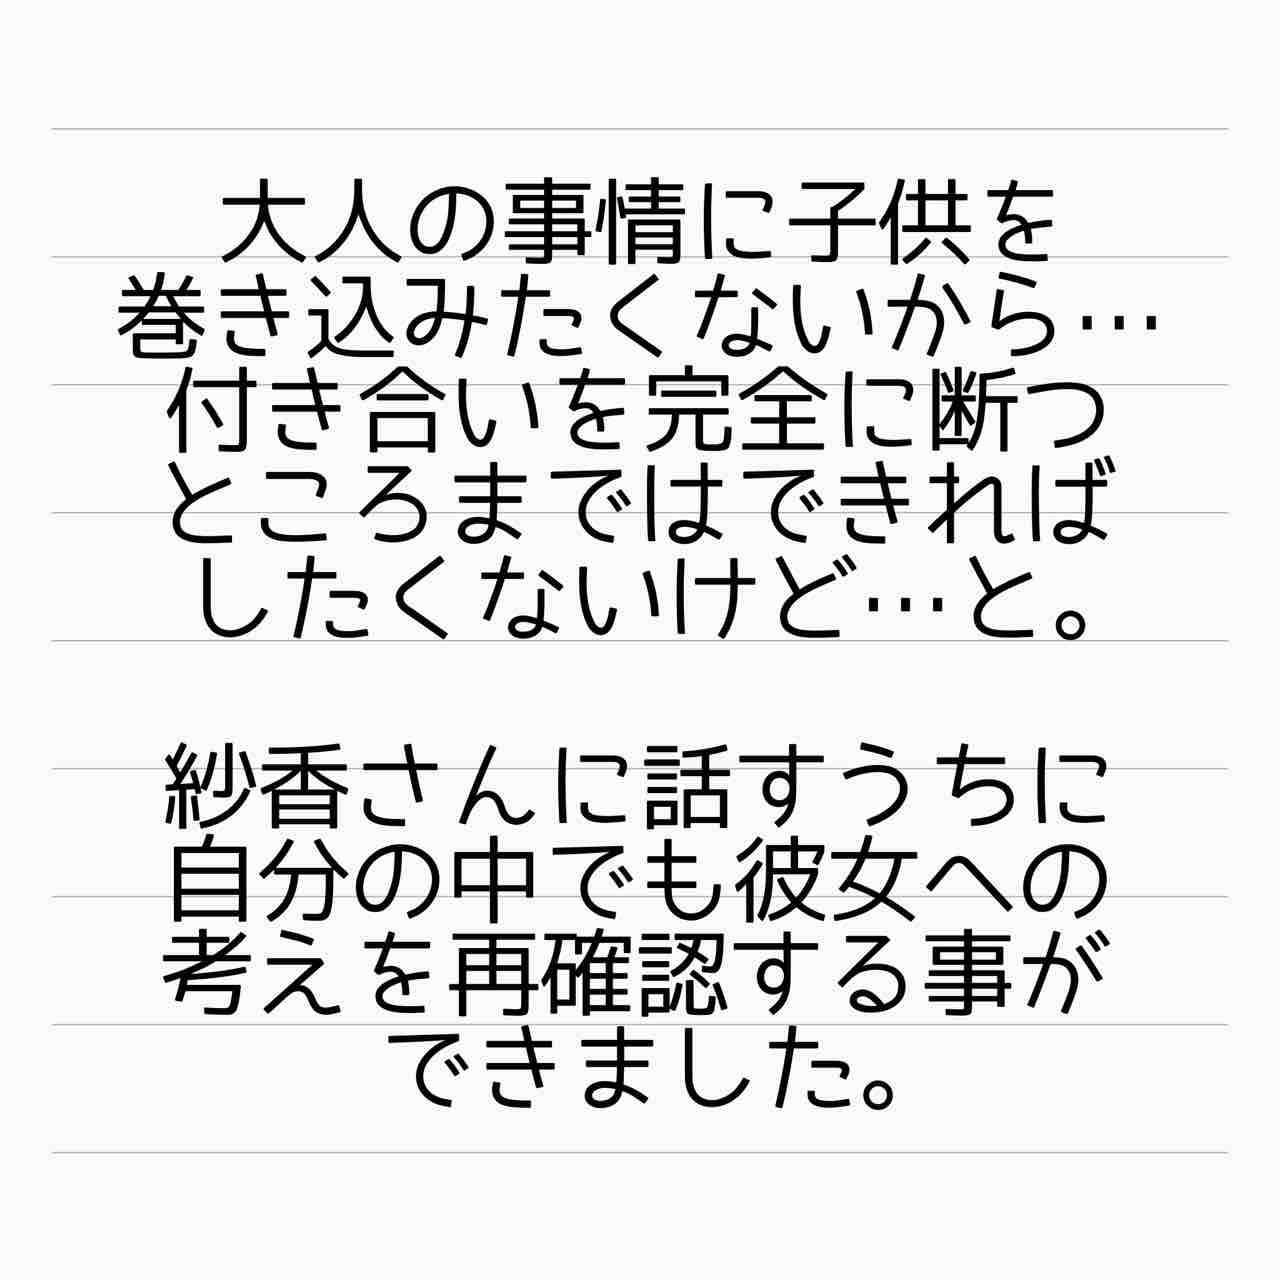 大人の事情に子供を
巻き込みたくないから…
付き合いを完全に断つ
ところまではできれば
したくないけど…と。
紗香さんに話すうちに
自分の中でも彼女への
考えを再確認する事が
できました。